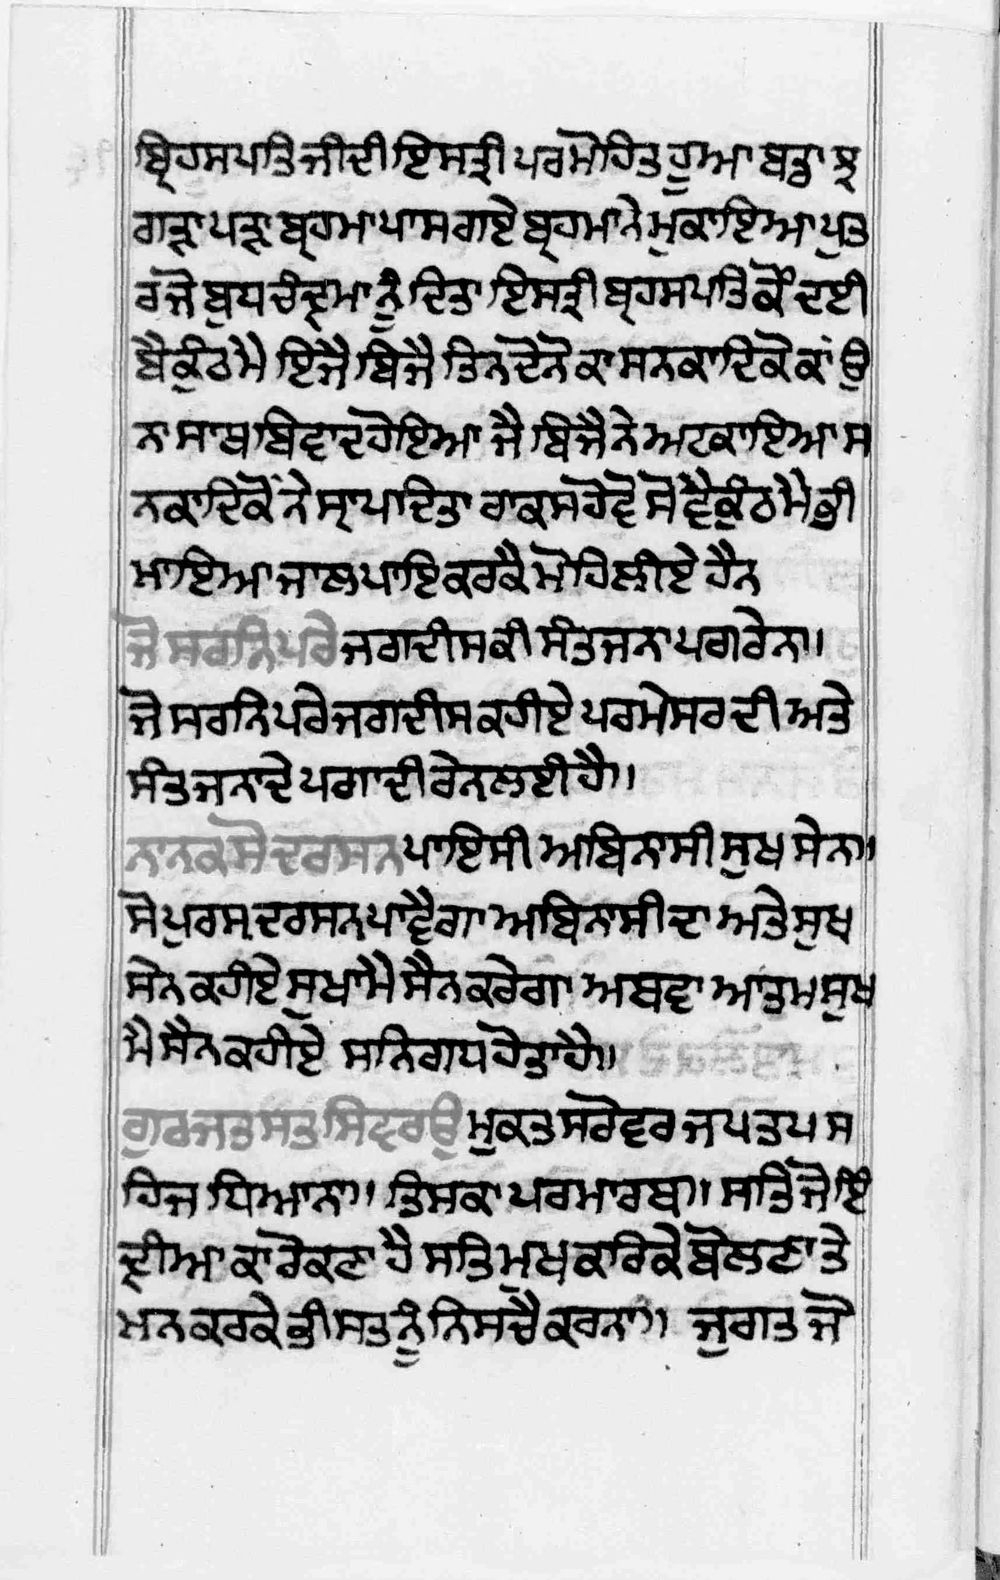 ਬ੍ਰਿਹਸਪਤਿ ਜੀ ਦੀ ਇਸਤ੍ਰੀ ਪਰ ਮੋਹਿਤ ਹੂਆ ਬਡਾ ਝ
ਗੜਾ ਪੜਾ ਬ੍ਰਹਮਾ ਪਾਸ ਗਏ ਬ੍ਰਹਮਾ ਨੇ ਮੁਕਾਇਆ ਪੁਤ
ਰ ਜੋ ਬੁਧ ਚੰਦ੍ਰਮਾ ਨੂੰ ਦਿਤਾ ਇਸਤ੍ਰੀ ਬ੍ਰਹਸਪਤਿ ਕੌ ਦਈ
ਬੈਕੁੰਠ ਮੈ ਇਜੈ ਬਿਜੈ ਤਿਨ ਦੋਨੋ ਕਾ ਸਨਕਾਦਿਕੋ ਕਾ ਉ
ਨਾ ਸਾਥ ਬਿਵਾਦ ਹੋਇਆ ਜੈ ਬਿਜੈ ਨੇ ਅਟਕਾਇਆ ਸ
ਨਕਾਦਿਕੋਂ ਨੇ ਸ੍ਰਾਪ ਦਿਤਾ ਰਾਕਸ ਹੋਵੋ ਸੋ ਵੈਕੁੰਠ ਮੈ ਭੀ
ਮਾਇਆ ਜਾਲ ਪਾਇ ਕਰਕੈ ਮੋਹਿ ਲੀਏ ਹੈਨ
ਜੋ ਸਰਨਿ ਪਰੇ ਜਗਦੀਸ ਕੀ ਸੰਤ ਜਨਾ ਪਗ ਰੇਨਾ।
ਜੋ ਸਰਨਿ ਪਰੇ ਜਗਦੀਸ ਕਹੀਏ ਪਰਮੇਸਰ ਦੀ ਅਤੇ
ਸੰਤ ਜਨਾ ਦੇ ਪਗਾ ਦੀ ਰੇਨ ਲਈ ਹੈ॥
ਨਾਨਕ ਸੋ ਦਰਸਨ ਪਾਇਸੀ ਅਬਿਨਾਸੀ ਸੁਖ ਸੇਨਾ॥
ਸੋ ਪੁਰਸ ਦਰਸਨ ਪਾਵੈਗਾ ਅਬਿਨਾਸੀ ਦਾ ਅਤੇ ਸੁਖ
ਸੇਨ ਕਹੀਏ ਸੁਖਾ ਮੈ ਸੈਨ ਕਰੇਗਾ ਅਥਵਾ ਆਤਮ ਸੁਖ
ਮੈ ਸੈਨ ਕਹੀਏ ਸਨਿਗਧ ਹੋਤਾ ਹੈ॥
ਗੁਰ ਜਤ ਸਤ ਸਿਵਰਉ ਮੁਕਤ ਸਰੋਵਰ ਜਪ ਤਪ ਸ
ਹਿਜ ਧਿਆਨਾ॥ ਤਿਸਕਾ ਪਰਮਾਰਥ॥ ਸਤਿ ਜੋ ਇੰ
ਦ੍ਰੀਆ ਕਾ ਰੋਕਣਾ ਹੈ ਸਤਿ ਮੁਖ ਕਾਰਿਕੇ ਬੋਲਣਾ ਤੇ
ਮਨ ਕਰਕੇ ਭੀ ਸਤ ਨੂੰ ਨਿਸਚੈ ਕਰਨਾ॥ ਜੁਗਤ ਜੋ